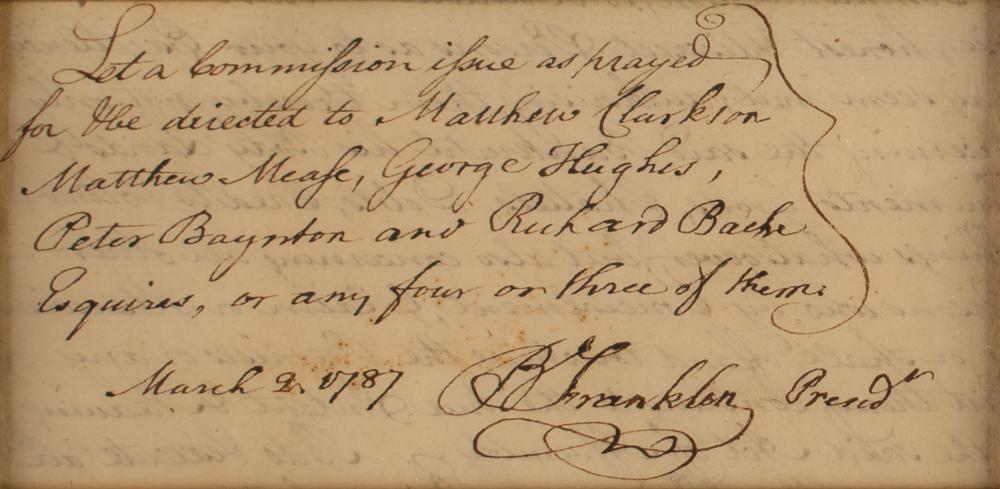 Let a Commission issue as prayed
for & be directed to Matthew Clarkson
Matthew Mease, George Hughes,
Peter Baynton and Richard Bache
Esquires, or any four or three of them.
March 2. 1787 B Franklin Presidt